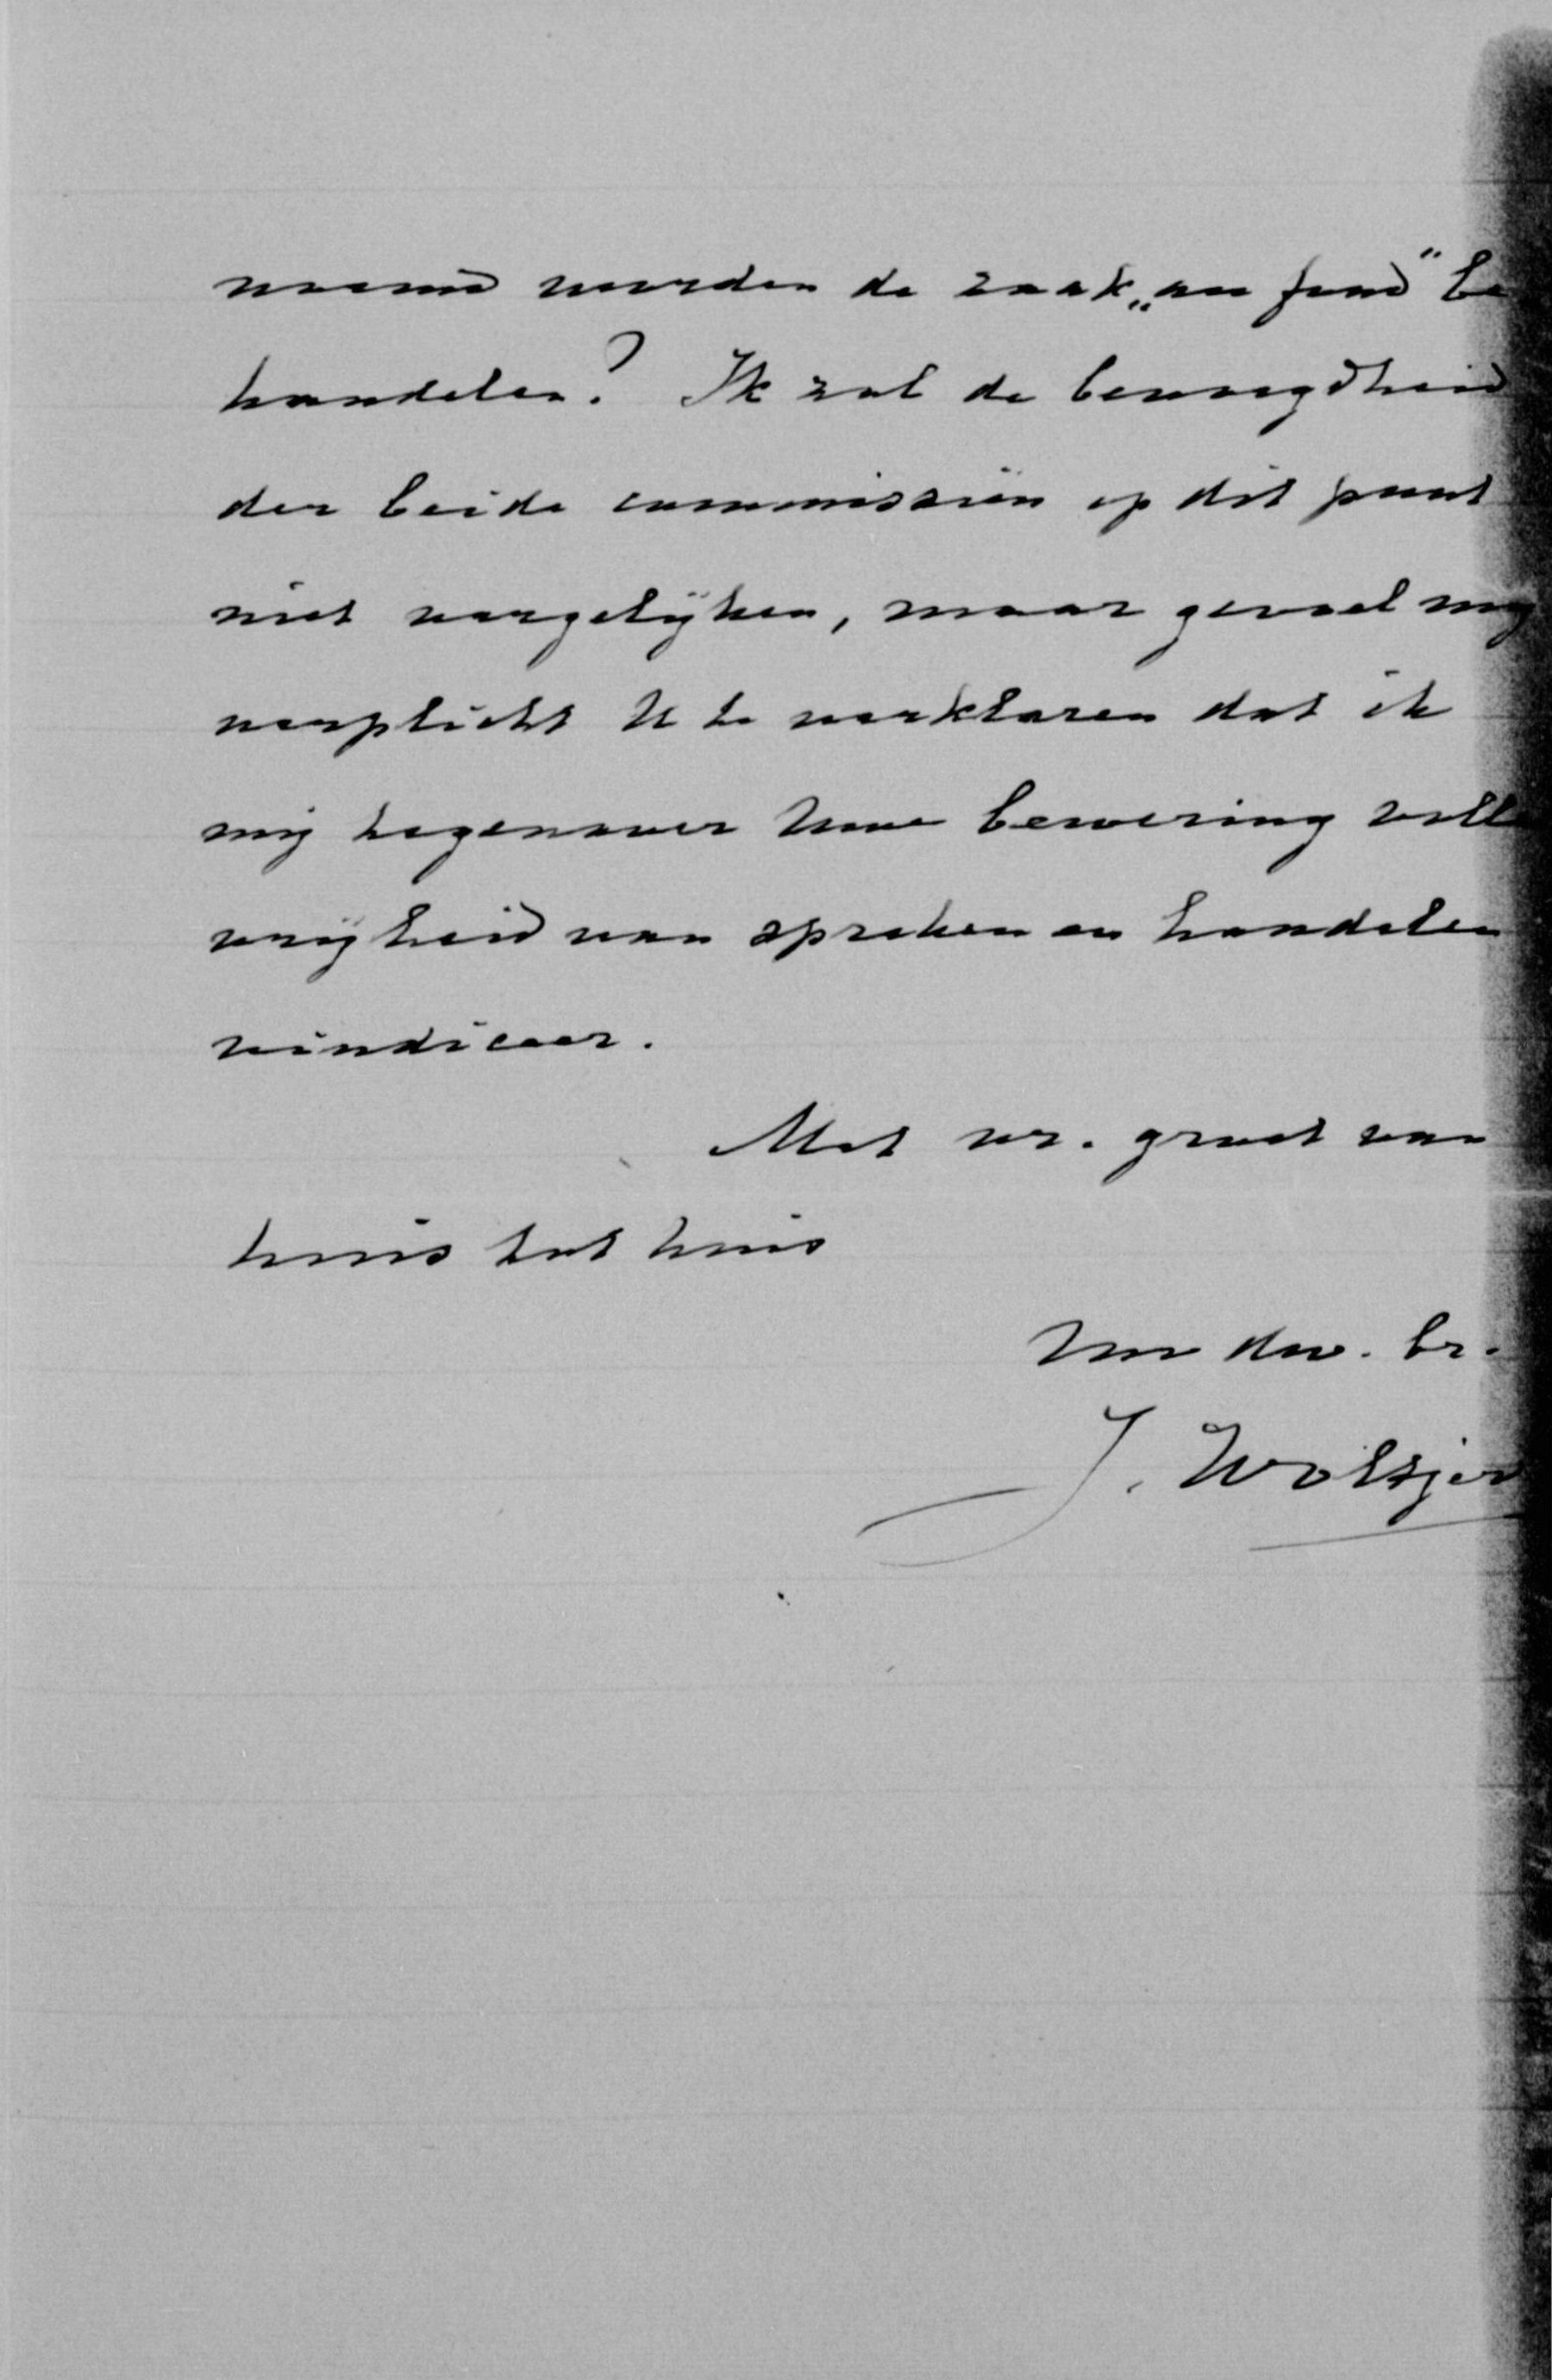 noemd worden de zaak „au fond” be
handelen? Ik zal de bevoegdheid
der beide commissiën op dit punt
niet vergelijken, maar gevoel mij
verplicht U te verklaren dat ik
mij tegenover Uwe bewering volle
vrijheid van spreken en handelen
vindiceer.
Met vr. groet van
huis tot huis
Uw dw. br.
J. Woltjer